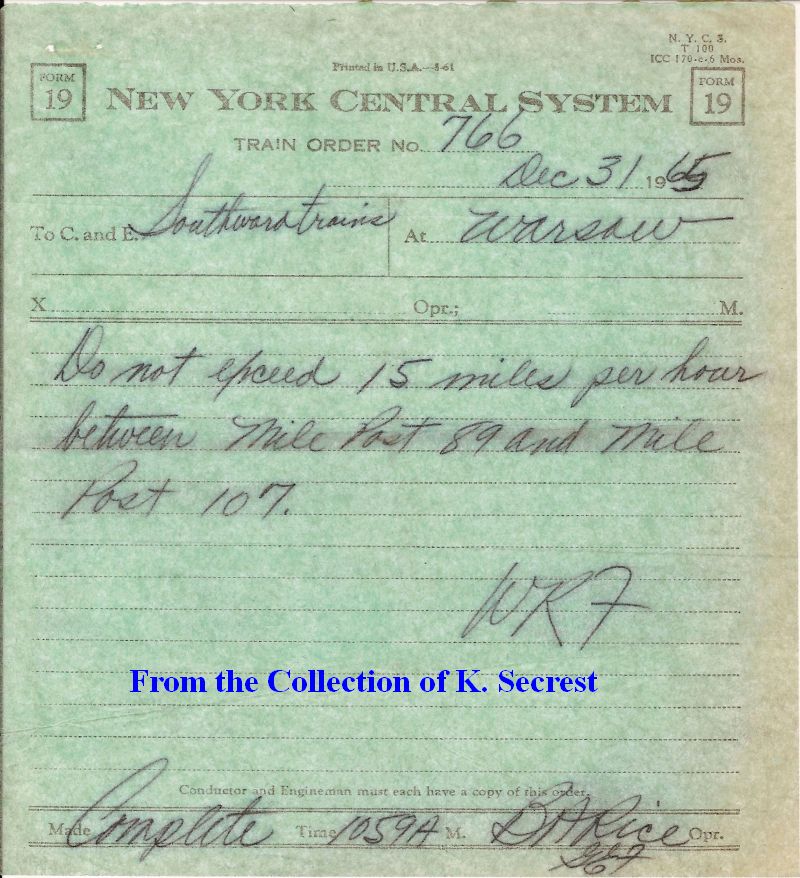 N. Y. C. S.
T 100
ICC 170-c-6 Mos.
Printed in U.S.A.—8-61
FORM 19
NEW YORK CENTRAL SYSTEM
FORM 19
TRAIN ORDER No. 766
Dec 31 1965
To C. and E. Southward trains At Warsaw
X Opr.; M.
Do not exceed 15 miles per hour
between Mile Post 89 and Mile
Post 107.
WRF
From the Collection of K. Secrest
Conductor and Engineman must each have a copy of this order.
Made Complete Time 1059A M. Rice Opr.